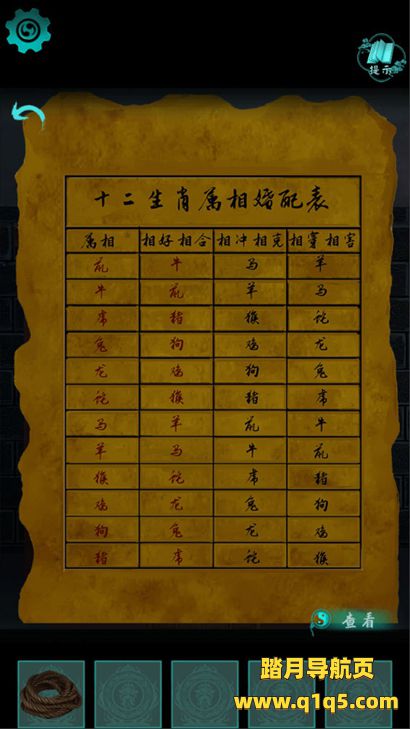 提示
十二生肖属相婚配表
属相 相好相合 相冲相克 相穿相害
鼠 牛 马 羊
牛 鼠 羊 马
虎 猪 猴 蛇
兔 狗 鸡 龙
龙 鸡 狗 兔
蛇 猴 猪 虎
马 羊 鼠 牛
羊 马 牛 鼠
猴 蛇 虎 猪
鸡 龙 兔 狗
狗 兔 龙 鸡
猪 虎 蛇 猴
查看
踏月导航页
www.q1q5.com